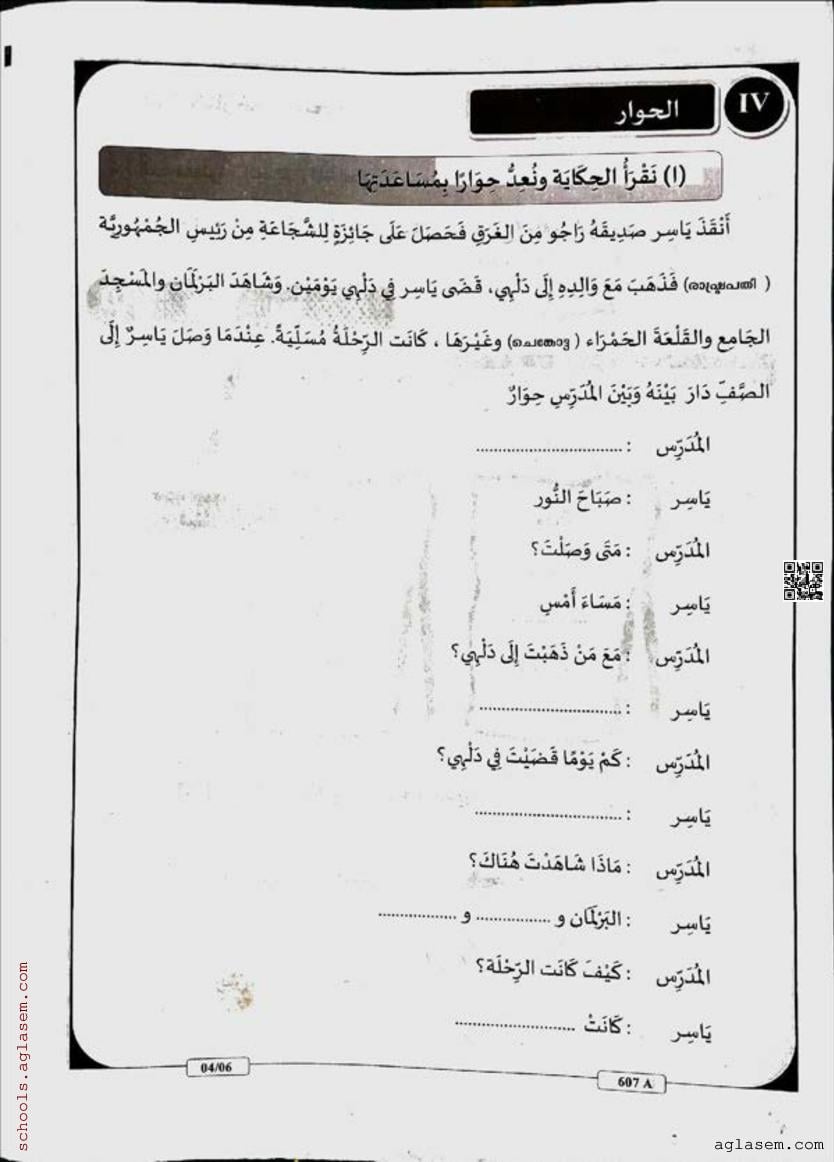 IV
الحوار
(١) نَقْرَأُ الحِكَايَة ونُعِدُّ حِوَارًا بِمُسَاعَدَتِهَا
أَنْقَذَ يَاسِر صَدِيقَهُ رَاجُو مِنَ الغَرَقِ فَحَصَلَ عَلَى جَائِزَةٍ لِلشَّجَاعَةِ مِنْ رَئِيسِ الجُمْهُورِيَّة
(രാഷ്ട്രപതി) فَذَهَبَ مَعَ وَالِدِهِ إِلَى دَلْهِي، قَضَى يَاسِر فِي دَلْهِي يَوْمَيْن. وَشَاهَدَ البَرْلَمَان والمَسْجِدَ
الجَامِع والقَلْعَةَ الحَمْرَاء (ചെങ്കോട്ട) وغَيْرَهَا ، كَانَت الرِّحْلَةُ مُسَلِّيَةً. عِنْدَمَا وَصَلَ يَاسِرٌ إِلَى
الصَّفِّ دَارَ بَيْنَهُ وَبَيْنَ المُدَرِّسِ حِوَارٌ
المُدَرِّس : ..................................
يَاسِر : صَبَاحَ النُّور
المُدَرِّس : مَتَى وَصَلْتَ؟
يَاسِر : مَسَاءَ أَمْسِ
المُدَرِّس : مَعَ مَنْ ذَهَبْتَ إِلَى دَلْهِي؟
يَاسِر : ..................................
المُدَرِّس : كَمْ يَوْمًا قَضَيْتَ فِي دَلْهِي؟
يَاسِر : ..................................
المُدَرِّس : مَاذَا شَاهَدْتَ هُنَاكَ؟
يَاسِر : البَرْلَمَان و ................. و ..................
المُدَرِّس : كَيْفَ كَانَت الرِّحْلَة؟
يَاسِر : كَانَتْ ............................
04/06
607 A
schools.aglasem.com
aglasem.com